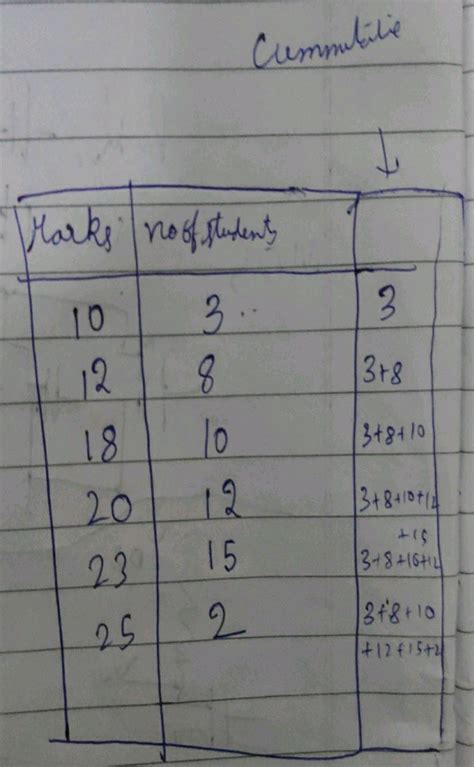 Cummulative
↓
Marks no of students
10 3 3
12 8 3+8
18 10 3+8+10
20 12 3+8+10+12
+15
23 15 3+8+10+12
25 2 3+8+10
+12+15+2